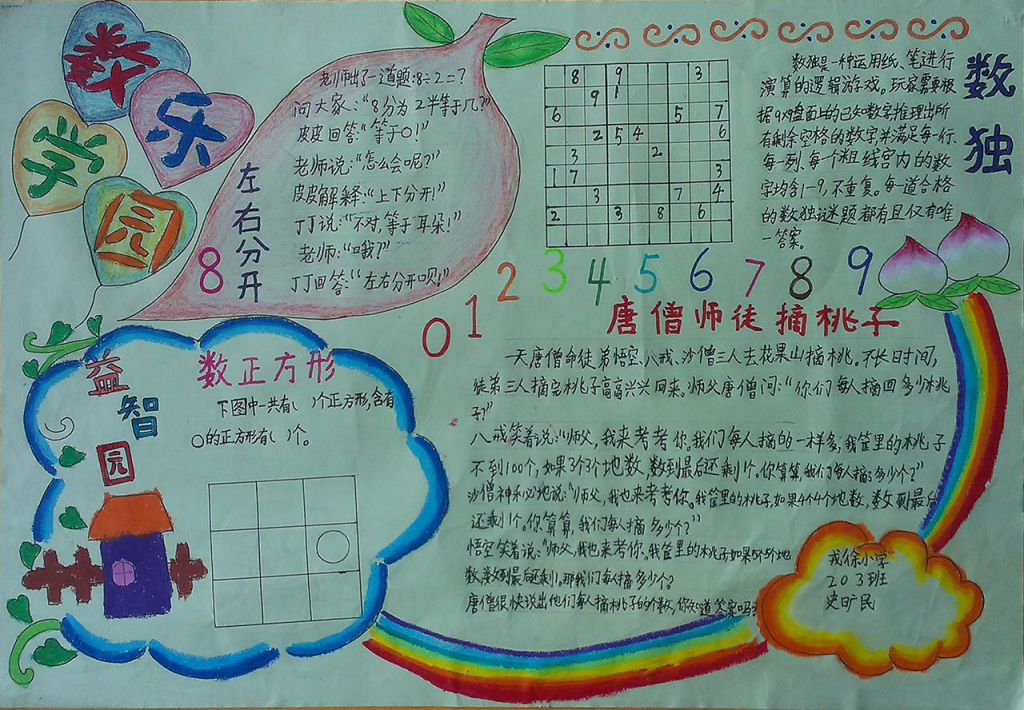 数
学
乐
园
老师出了一道题:8÷2=?
问大家:“8分为2半等于几?”
皮皮回答:“等于0!”
老师说:“怎么会呢?”
皮皮解释:“上下分开!”
丁丁说:“不对,等于耳朵!”
老师:“哦?”
丁丁回答:“左右分开呗!”
8左右分开
8 9 3
9 1
6 5 7
2 5 4
3 2
1 7 3
3 7 4
2 3 8 6
数独
数独是一种运用纸、笔进行
演算的逻辑游戏。玩家需要根
据9×9盘面上的已知数字推理出所
有剩余空格的数字,并满足每一行、
每一列、每个粗线宫内的数
字均含1-9,不重复。每一道合格
的数独谜题都有且仅有唯
一答案。
0 1 2 3 4 5 6 7 8 9
唐僧师徒摘桃子
一天唐僧命徒弟悟空、八戒、沙僧三人去花果山摘桃。不长日时间,
徒弟三人摘完桃子高高兴兴回来。师父唐僧问:“你们每人摘回多少桃
子?”
八戒笑着说:“师父,我来考考你。我们每人摘的一样多,我筐里的桃子
不到100个,如果3个3个地数,数到最后还剩1个。你算算,我们每人摘多少个?”
沙僧神秘地说:“师父,我也来考考你。我筐里的桃子,如果4个4个地数,数到最后
还剩1个。你算算,我们每人摘多少个?”
悟空笑着说:“师父,我也来考你,我筐里的桃子如果5个5个地
数,数到最后还剩1。那我们每人摘多少个?
唐僧很快说出他们每人摘桃子的个数,你知道答案吗?
益智园
数正方形
下图中一共有( )个正方形,含有
○的正方形有( )个。
小学
203班
史旷民